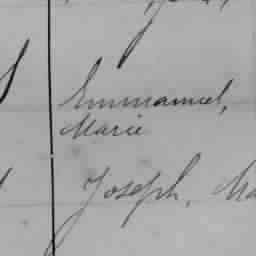 Emmanuel,
Marie
Joseph, Ma